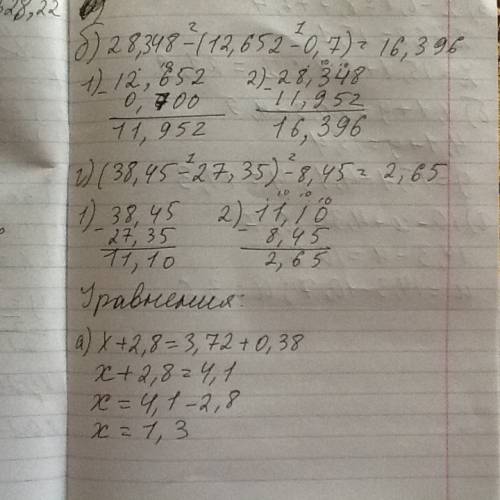 28,22
б) 28,348 - (12,652 - 0,7) = 16,396
1) - 12,652   2) - 28,348
0,700   11,952
11,952   16,396
г) (38,45 - 27,35) - 8,45 = 2,65
1) - 38,45   2) - 11,10
27,35   8,45
11,10   2,65
Уравнения:
а) x + 2,8 = 3,72 + 0,38
x + 2,8 = 4,1
x = 4,1 - 2,8
x = 1,3